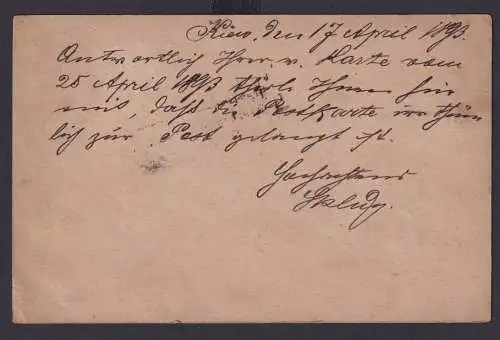 Kiew, den 17 April 1893.
Antwortlich Ihrer w. Karte vom
25 April 1893 theile Ihnen hier
mit, daß die Postkarte irrthüm
lich zur Post gelangt ist.
Hochachtend